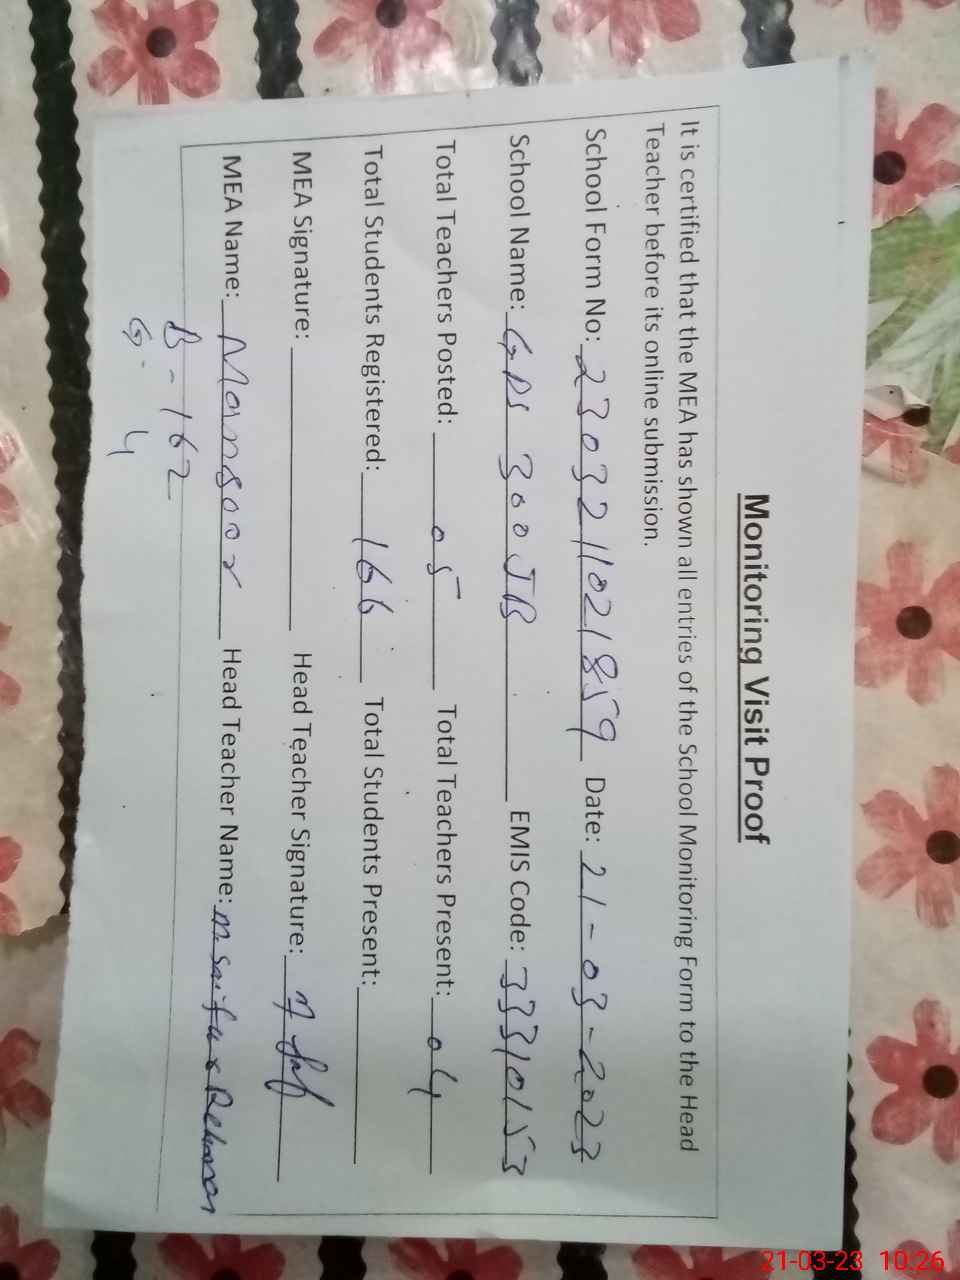 Monitoring Visit Proof
It is certified that the MEA has shown all entries of the School Monitoring Form to the Head
Teacher before its online submission.
School Form No: 2303211021859 Date: 21-03-2023
School Name: GPS 300 JB EMIS Code: 33310153
Total Teachers Posted: 05 Total Teachers Present: 04
Total Students Registered: 166 Total Students Present:
MEA Signature: Head Teacher Signature:
MEA Name: Mansoor Head Teacher Name: M. Saif ur Rehman
B - 162
G. 4
21-03-23 10:26